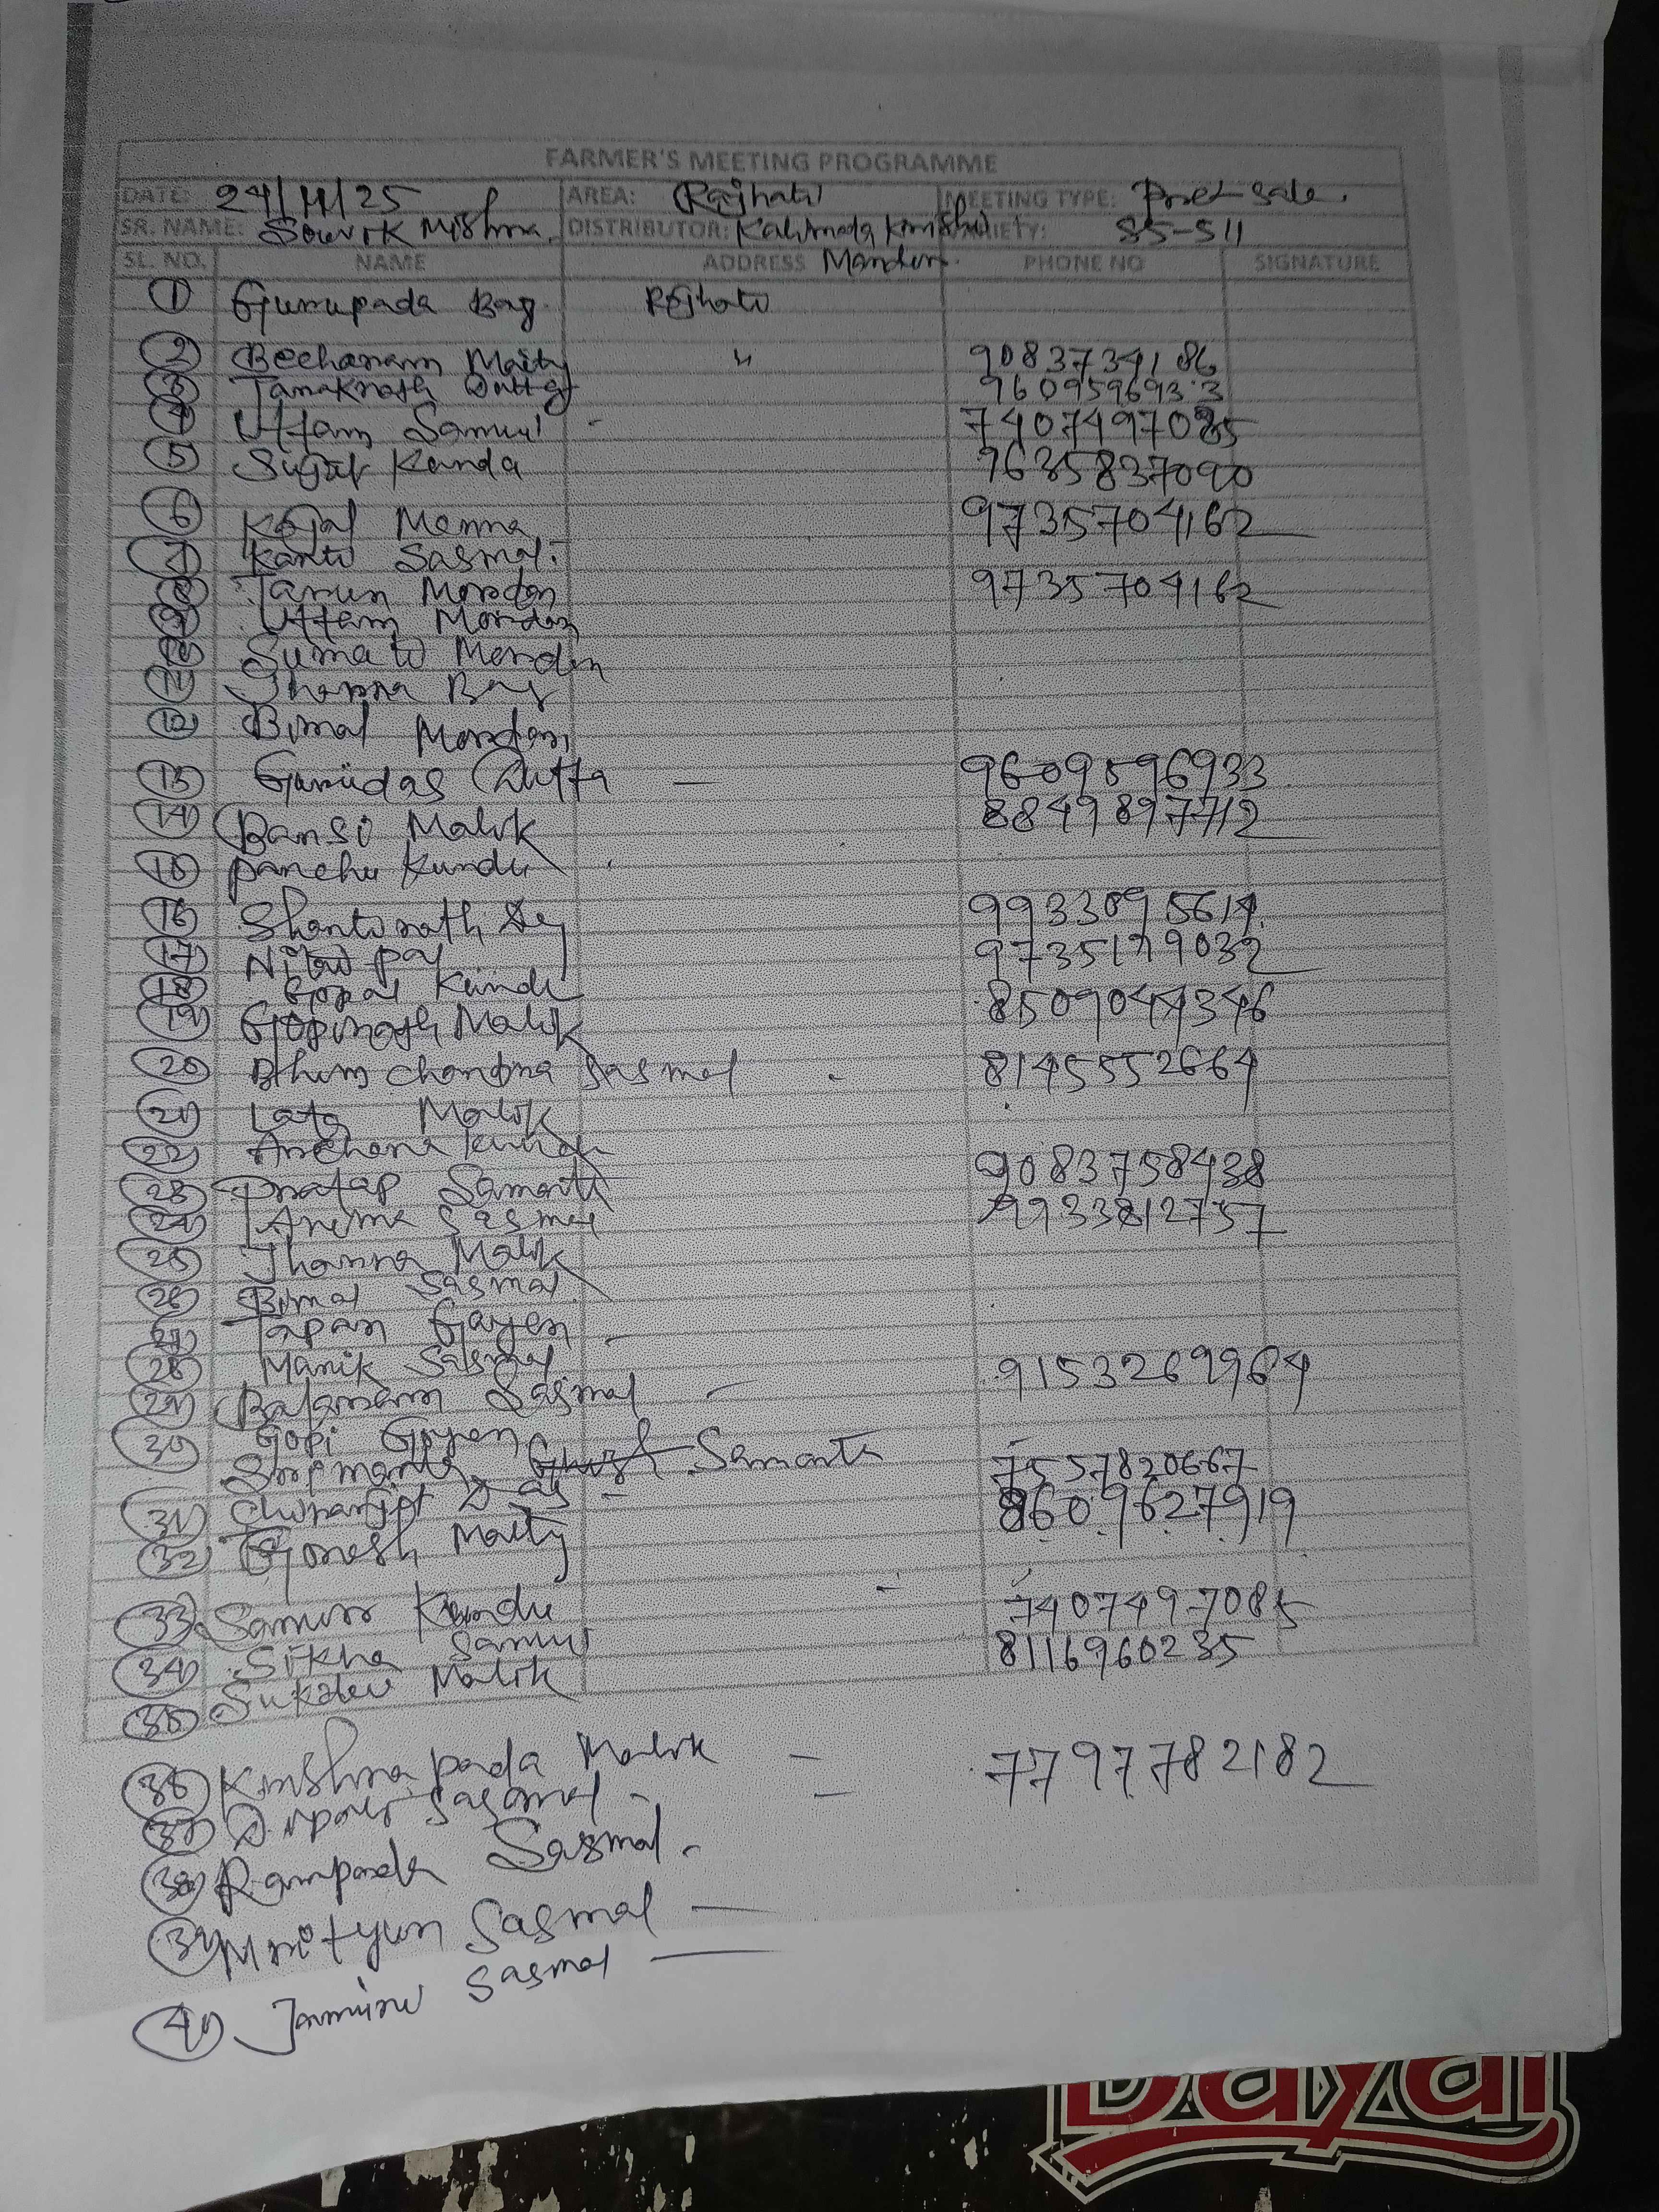 FARMER'S MEETING PROGRAMME
DATE: 24/11/25 AREA: Rajhati MEETING TYPE: Pre-Sale.
SR. NAME: Souvik Mishra. DISTRIBUTOR: VARIETY: SS-511
SL. NO. NAME ADDRESS PHONE NO SIGNATURE
1 Gurupada Bag. Rajhati
2 Becharam Maity " 9083734186
3 Taraknath Dutta 9609596933
4 Uttam Samui - 7407497085
5 Sujit Kanda 9635837090
6 Kajal Manna 9735704162
7 Kanti Sasmal.
8 Tarun Mondal 9735704162
9 Uttam Mondal
10 Sumati Mondal
11 Jharna Bag
12 Bimal Mondal
13 Gurudas Dutta — 9609596933
14 Bansi Malik 8849897712
15 Panchu Kundu
16 Shantinath Dey 9933095614
17 Nitai Pal 9735179032
18 Gopal Kundu
19 Gopinath Malik 8509044346
20 Bhim Chandra Sasmal - 8145552664
21 Lata Malik
22 Archana Kundu
23 Pratap Samanta 9083758438
24 Anima Sasmal 9933812757
25 Jharna Malik
26 Bimal Sasmal
27 Tapan Gayen -
28 Manik Sasmal 9153269964
29 Balaram Sasmal —
30 Gopi Gayen
Srimanta Samanta 7557820667
31 Chiranjit Das - 8609627919
32 Ganesh Maity
33 Samir Kundu - 7407497085
34 Sikha Samui 8116960235
35 Sukdev Malik
36 Krishna pada Malik — 7797782182
37 Sasmal -
38 Rampada Sasmal -
39 Mrityun Sasmal —
40 Sasmal —
Dayal